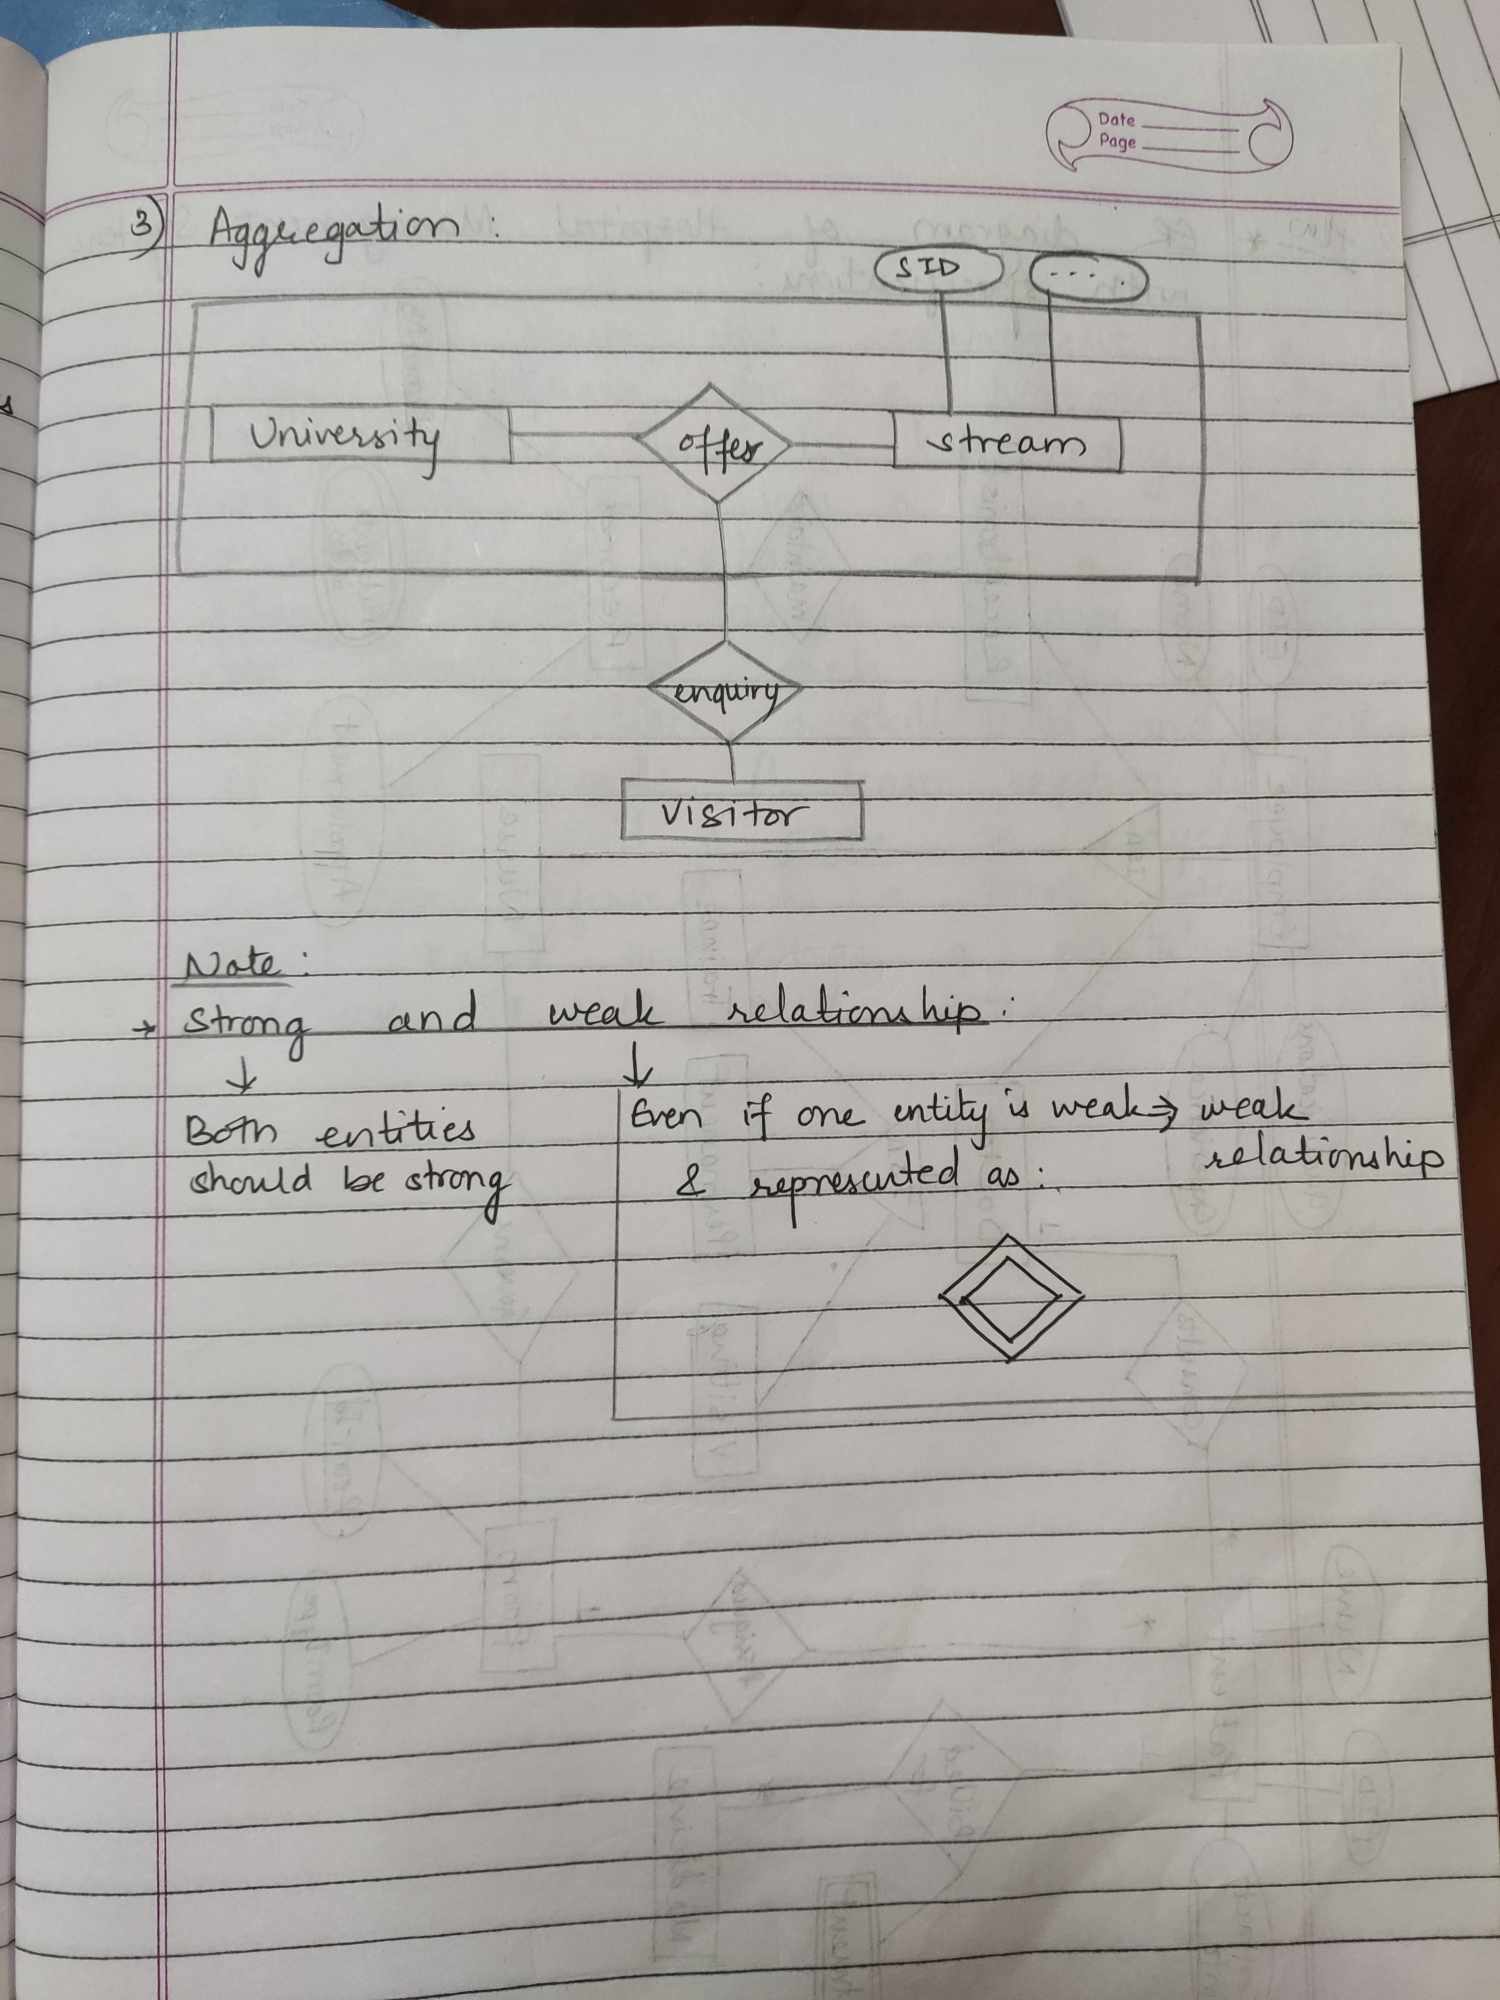 Date
Page
3) Aggregation:
SID ....
University offer stream
enquiry
Visitor
Note:
→ Strong and weak relationship:
↓ ↓
Both entities
should be strong
Even if one entity is weak → weak
relationship
& represented as: